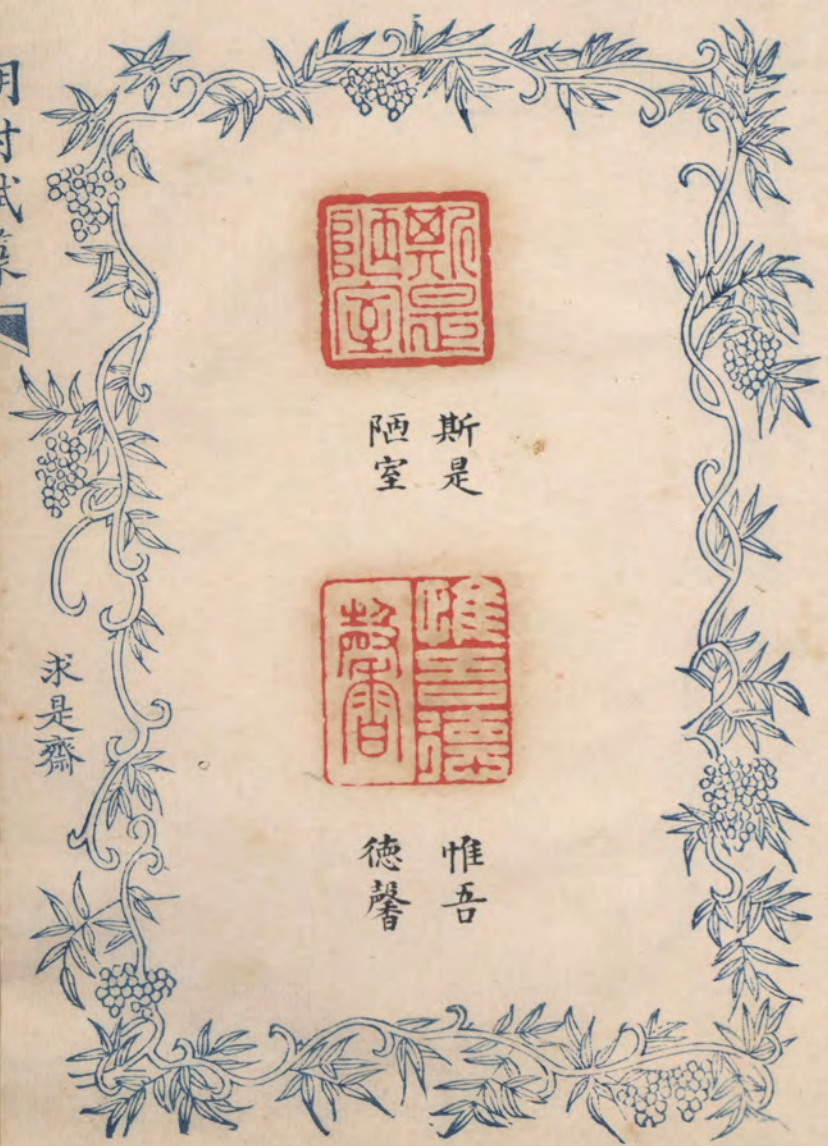 斯是
陋室
斯是
陋室
惟吾德
馨
惟吾
徳馨
求是齋